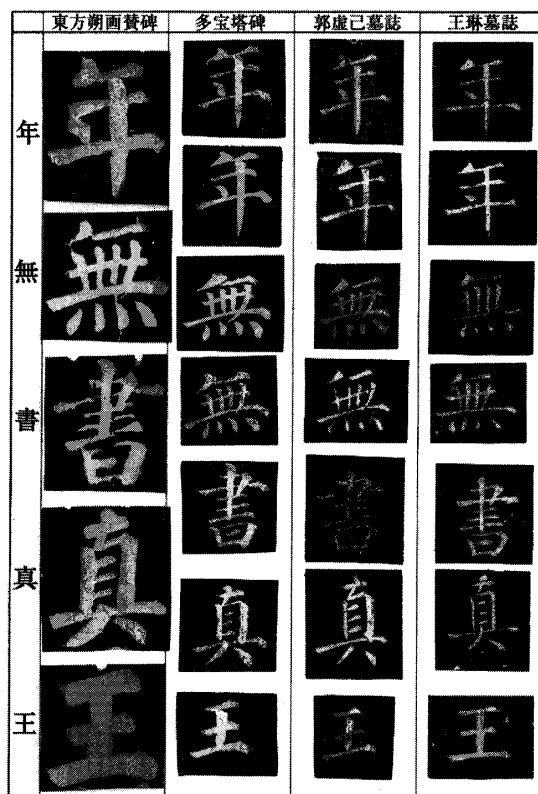 東方朔画賛碑 多宝塔碑 郭虚己墓誌 王琳墓誌
年 年 年 年 年
年 年 年
無 無 無 無 無
無 無 無
書 書 書 書 書
真 真 真 真 真
王 王 王 王 王